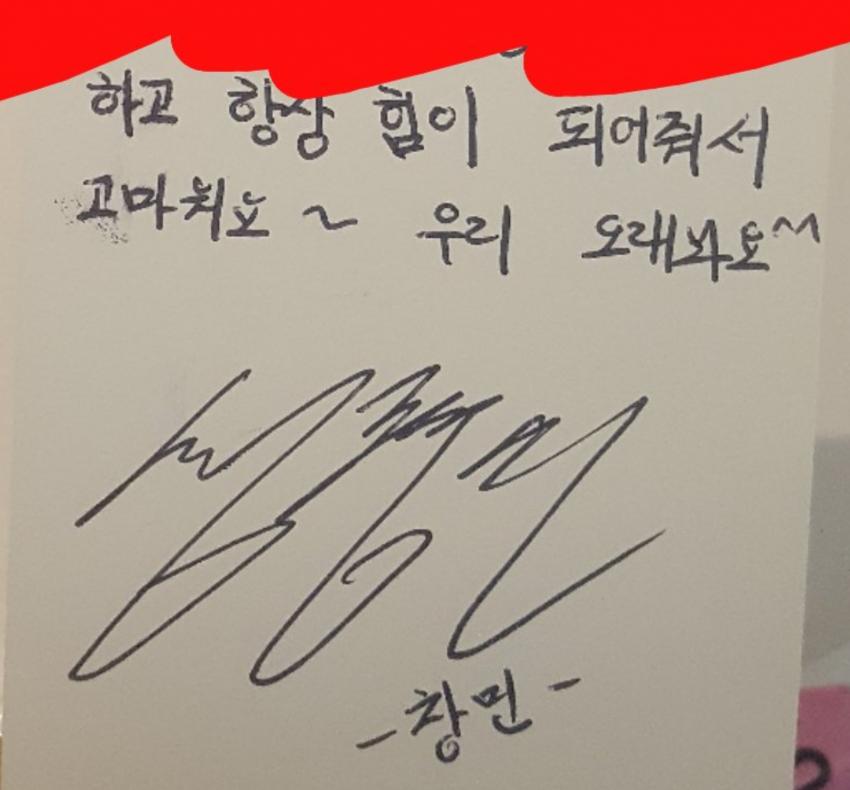 하고 항상 힘이 되어줘서
고마워요 ~ 우리 오래봐요^^
- 창민 -